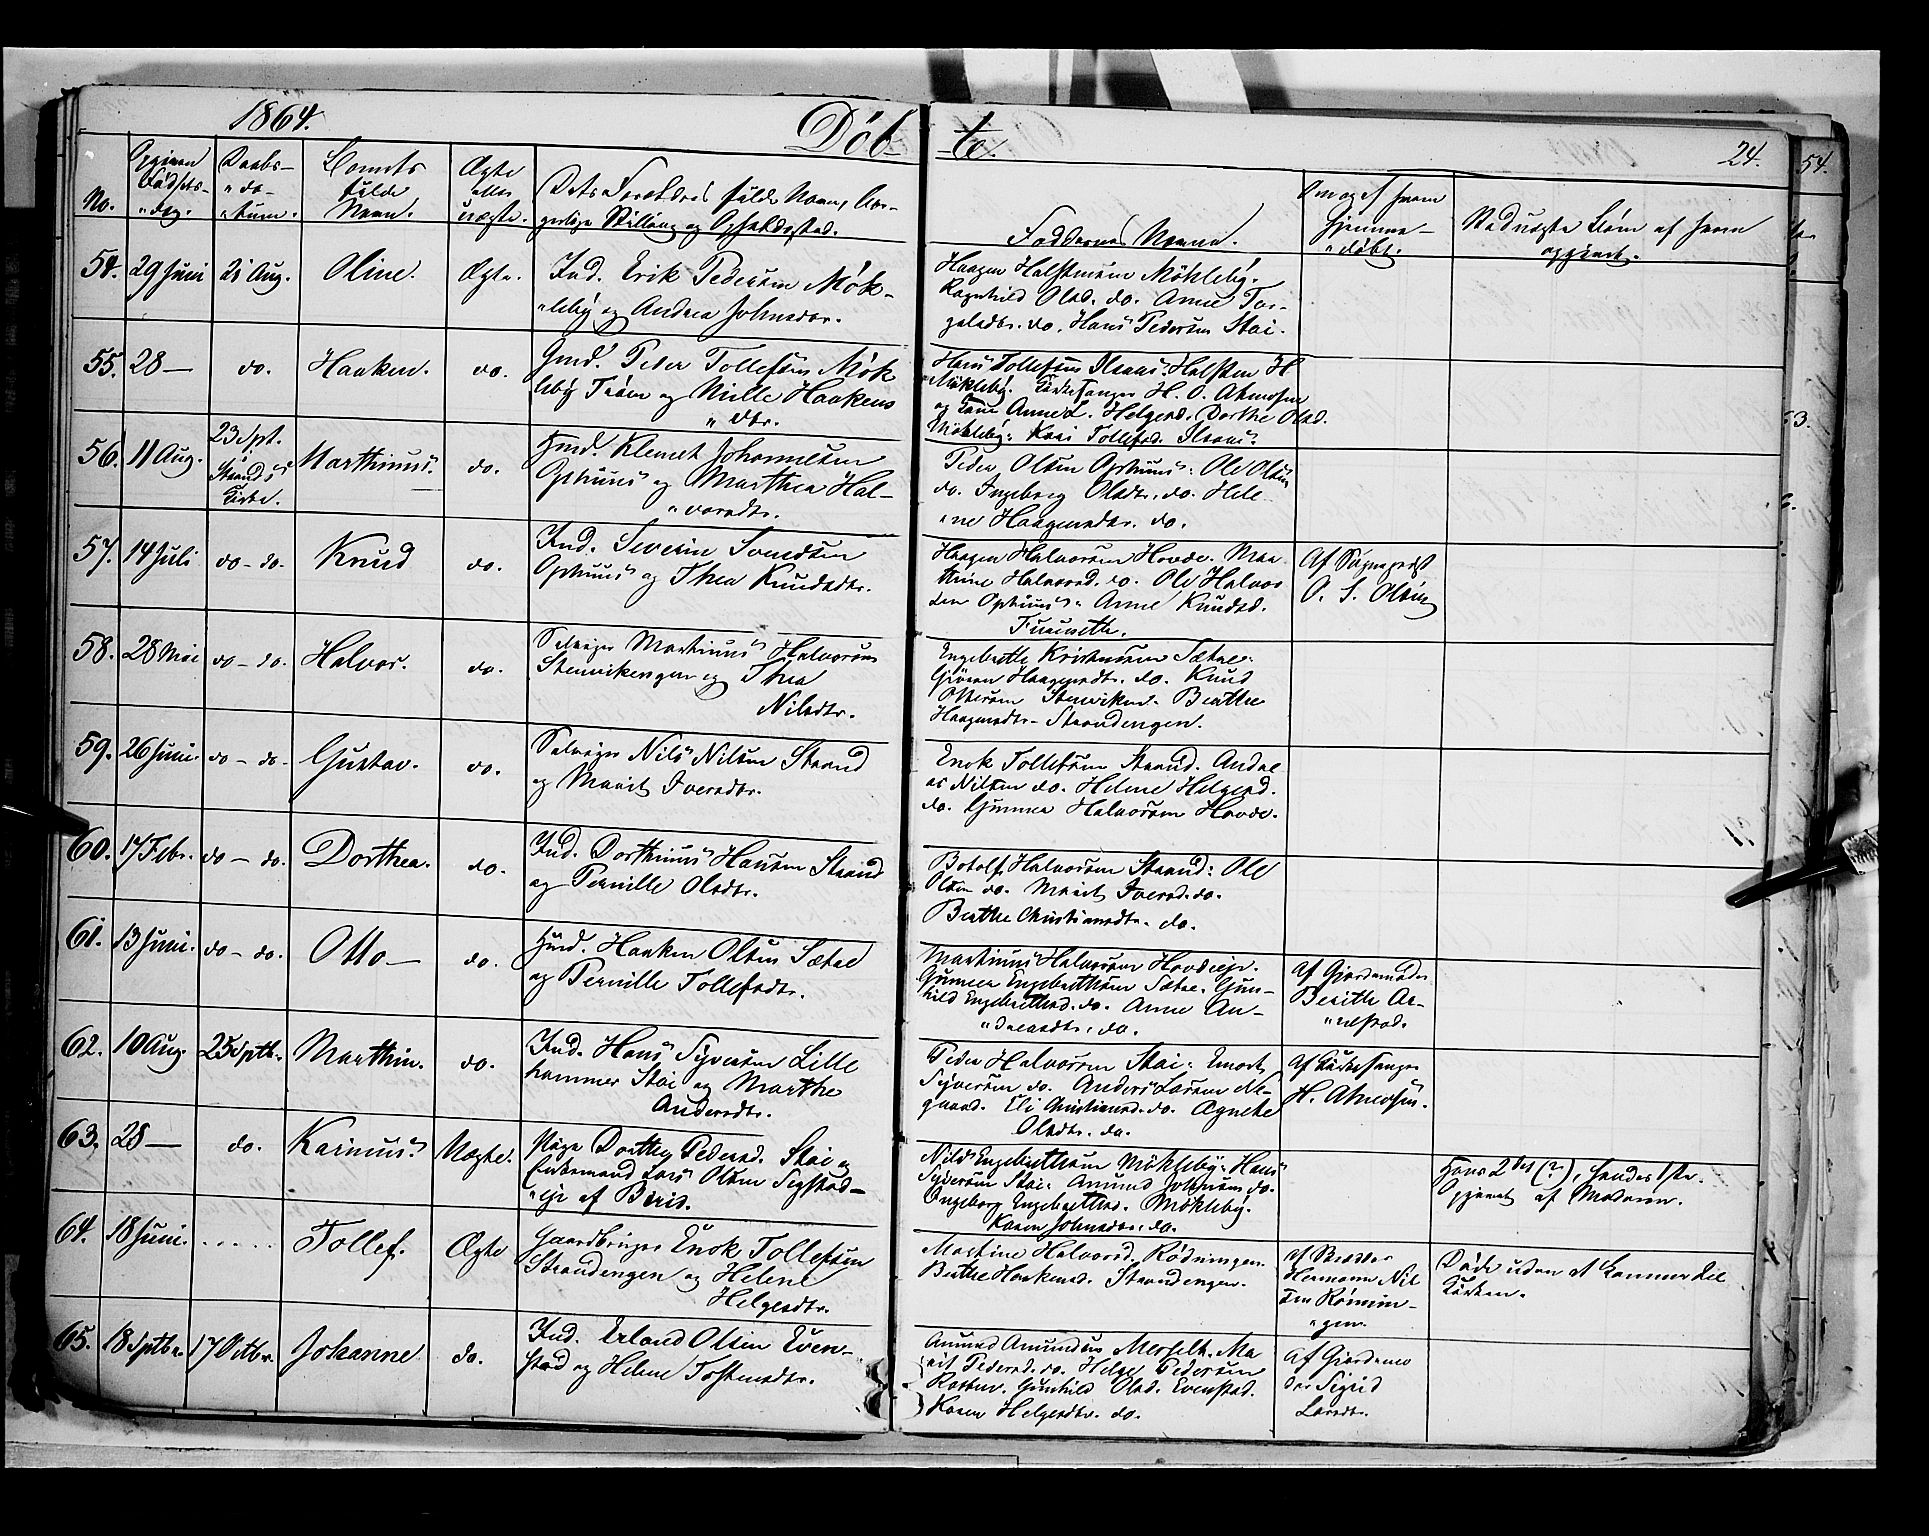 1864.
Döb-
te.
24.
54.
No.
Opgiven
Fødsels-
"dag.
Daabs-
"da-
"tum.
Barnets
fulde
Navn.
Ægte
eller
uægte.
Dets Forældres fulde Navn, bor-
gerlige Stilling og Opholdssted.
Faddernes Navne.
Om og af hvem
hjemme-
"døbt.
Ved uægte Børn af hvem
opgivet.
54.
29 Juni
21 Aug.
Oline.
Ægte.
Ind. Erik Pedersøn Mök-
"leby og Andrea Johnsdtr.
Haagen Halstensøn Mökleby.
Ragnhild Olsd. do. Anne Tor-
galsdtr. do. Hans Pedersøn Stai.
55.
28 —
do.
Haaken.
do.
Gmd. Peder Tollefsøn Mök
leby Trøen og Mille Haakens
"dtr.
Hans Tollefsøn. Halsten H
Mökleby. Kirkesanger H. O. Atneosen
og Kone Anne L. Helgesd. Dorthe Olsd.
Mökleby. Kari Tollefsd.
56.
11 Aug.
23 Sept.
i
Strands
Kirke.
Marthinus.
do.
Hmd. Klemet Johannesen
Ophuus og Marthea Hal-
"vorsdtr.
Peder Olsen Ophuus. Ole Olsen
do. Ingeborg Olsdtr. do. Hele
"ne Haagensdtr. do.
57.
14 Juli
do - do.
Knud
do.
Ind. Severin Svendsen
Ophuus og Thea Knudsdtr.
Haagen Halvorsen Hovde. Mar
thine Halvorsd. do. Ole Halvor
sen Ophuus. Anne Knudsd.
Furuseth.
Af Sognepræst
O. S. Olsen
58.
28 Mai
do - do.
Halvor.
do.
Selveier Martinus Halvorsen
Stenvikengen og Thea
Nilsdtr.
Engebreth Kristensøn Sætre.
Gjøren Haagensdtr. do. Knud
Ottersøn Stenviken. Berthe
Haagensdtr. Strandengen.
59.
26 Juni.
do - do.
Gustav.
do.
Selveier Nils Nilsen Strand
og Marit Iversdtr.
Enok Tollefsøn Strand. Andre
as Nilsen do. Helene Helgesd.
do. Gunner Halvorsøn Hovde.
60.
17 Febr.
do - do.
Dorthea.
do.
Ind. Dorthinus Hansen Strand
og Pernille Olsdtr.
Botolf Halvorsøn Strand. Ole
Olsen do. Marit Iversd. do.
Berthe Christiansdtr. do.
61.
13 Juni.
do - do.
Otto —
do.
Hmd. Haaken Olsen Sætre
og Pernille Tollefsdtr.
Martinus Halvorsen Hovdeeje.
Gunner Engebrethsøn Sætre. Gun-
hild Engebrethsd. do. Anne An-
"dreasdtr. do.
Af Gjordemoder
Berithe Ar-
"nestad.
62.
10 Aug.
25 Septb.
Marthin.
do.
Ind. Hans Syversen Lille
hammer Stai og Marthe
Andersdtr.
Peder Halvorsøn Stai. Enort
Syversøn do. Anders Larsøn Ne-
gaard. Eli Christiansd. do. Agnete
Olsdtr. do.
Af Kirkesanger
H. Atneosen.
63.
28 —
do.
Karinus.
Uægte.
Pige Dorthe Pedersd. Stai og
Enkemand Lars Olsen Segstad-
"eje af Biris.
Nils Engebrethsøn Mökleby. Hans
Syversøn Stai. Amund Johnsøn do.
Ingeborg Engebrethsd. Mökleby.
Karen Johnsdtr. do.
Hans 2det (?), hendes 1ste.
Opgivet af Moderen.
64.
18 Juni.
. . . . .
Tollef.
Ægte
Gaardbruger Enok Tollefsen
Strandengen og Helene
Helgesdtr.
Martine Halvorsd. Rødningen.
Berthe Haakensd. Strandengen.
af
Hermann Nil
sen Rönnin-
"gen.
Døde uden at komme til
Kirken.
65.
18 Septbr.
17 Octbr.
Johanne
do.
Ind. Erland Olsen Even-
stad og Helene Tostensdtr.
Amund Amundsen Messelt. Ma
rit Pedersd. do. Helge Pedersøn
Rasten. Gunhild Olsd. Evenstad.
Karen Helgesdtr. do.
Af Gjordemo
der Sigrid
Larsdtr.